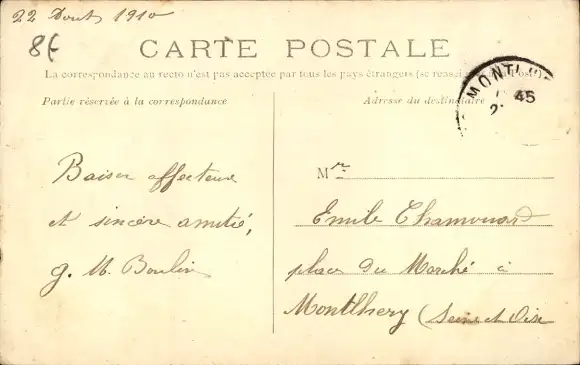 22 Août 1910
8€
CARTE POSTALE
La correspondance au recto n'est pas acceptée par tous les pays étrangers (se
Partie réservée à la correspondance
Adresse du destinataire
MONTL
45
Baiser affectueux
et sincère amitié,
g. M. Boulin
M r
Emile Chamouard
place du Marché à
Montlhery (Seine et Oise